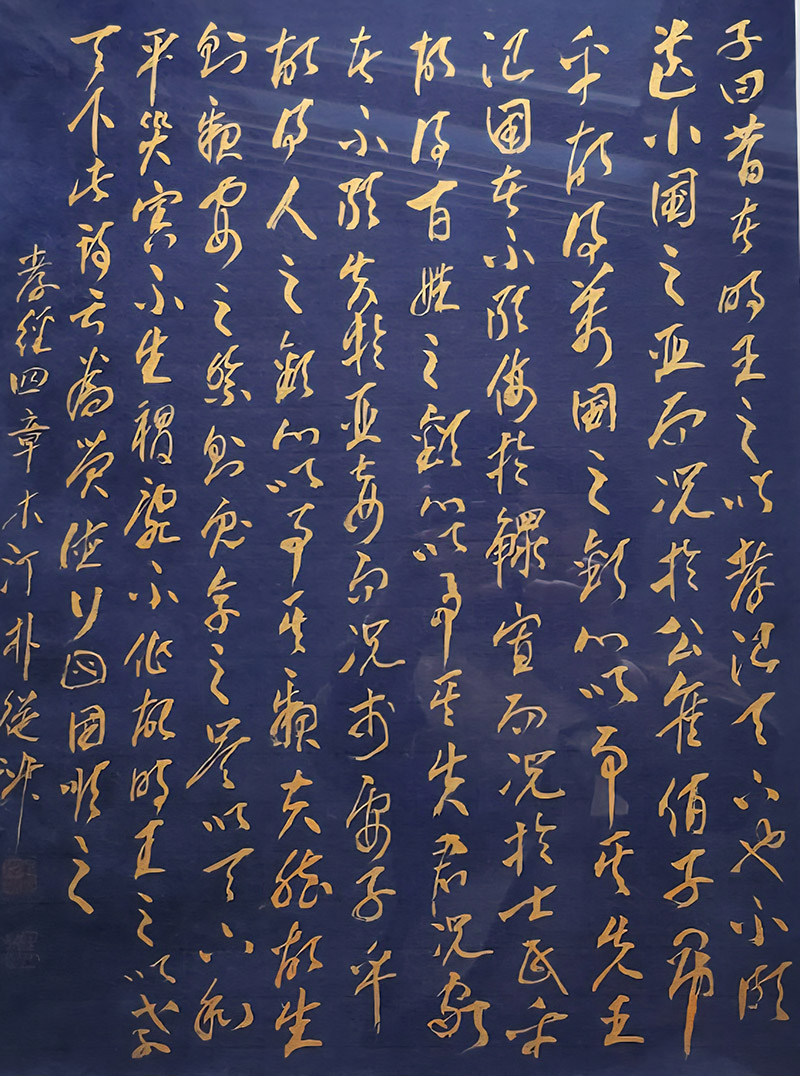 子曰昔者明王之以孝治天下也不敢
遺小國之臣而況於公侯伯子男
乎故得萬國之歡心以事其先王
治國者不敢侮於鰥寡而況於士民乎
故得百姓之歡心以事其先君治家
者不敢失於臣妾而況於妻子乎
故得人之歡心以事其親夫然故生
則親安之祭則鬼享之是以天下和
平災害不生禍亂不作故明王之以孝
天下此詩云有覺德行四國順之
孝經四章 木汀朴從洙